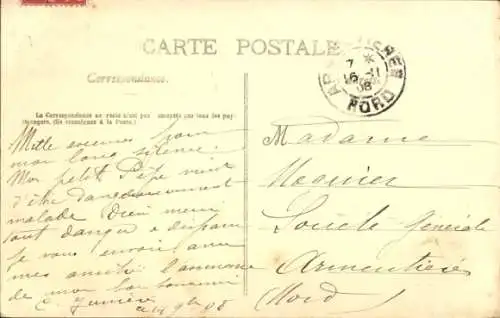 CARTE POSTALE
Correspondance.
La Correspondance au recto n'est pas acceptée par tous les pays
étrangers. (Se renseigner à la Poste.)
7 *
16-11
08
NORD
Mille excuses pour
mon long silence.
Mon petit Pépé vient
d'être dangereusement
malade Dieu merci
tout danger a disparu
Je vous envoie avec
mes amitiés l'annonce
de mon
a 14 9bre 08
Madame
Société Générale
Armentières
Nord